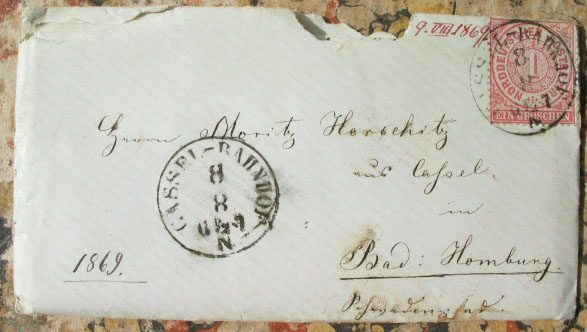 9. VIII 1869
NORDDEUTSCHER POSTBEZIRK
1
EIN GROSCHEN
CASSEL-BAHNHOF
8
Herrn Moritz Horschitz
aus Cassel.
in
Bad: Homburg.
CASSEL-BAHNHOF
8
8
N
1869.